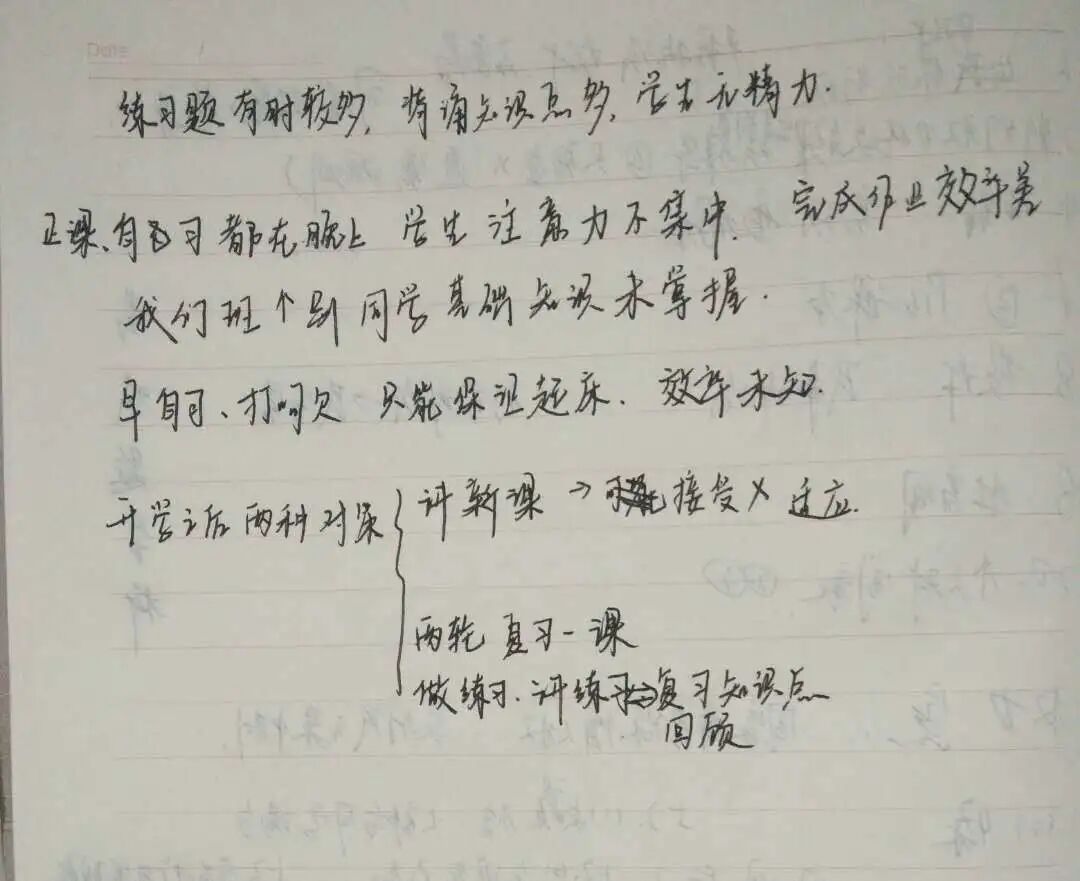 Date /
练习题有时较多, 背诵知识点多, 学生无精力.
正课、自习都在晚上 学生注意力不集中. 完成作业效率差
我们班个别同学基础知识未掌握.
早自习、打呵欠 只能保证起床. 效率未知.
开学之后两科对策
讲新课 → 接受 X 适应.
两轮复习一课
做练习. 讲练习 ⇔ 复习知识点
回顾